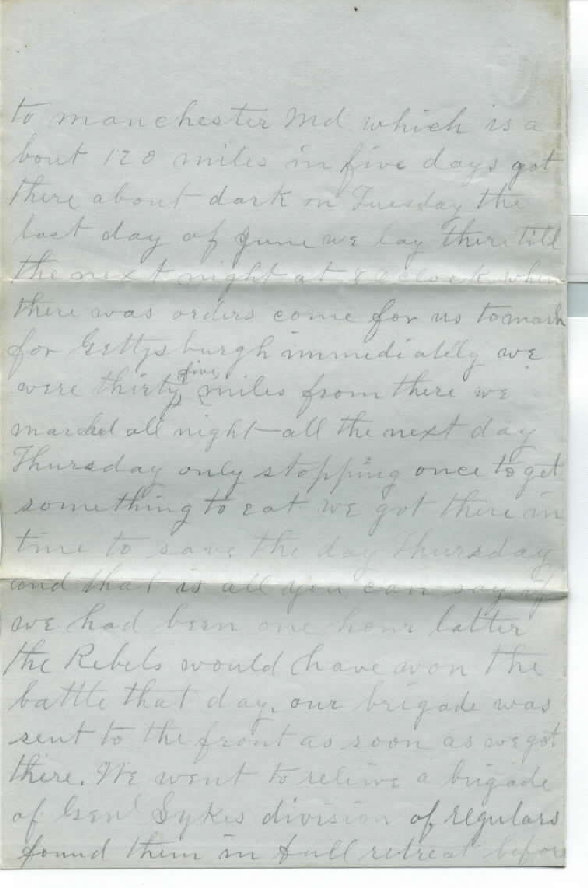 to manchester Md which is a
bout 120 miles in five days got
there about dark on Tuesday the
last day of June we lay there till
the next night at 8 oclock when
there was orders come for us to march
for Gettysburgh immediatlly we
were thirty five miles from there we
marched all night all the next day
Thursday only stopping once to get
something to eat we got there in
time to save the day Thursday
and that is all you can say if
we had been one hour latter
the Rebels would have won the
battle that day. our brigade was
sent to the front as soon as we got
there. We went to relieve a brigade
of Genl Sykes division of regulars
found them in full retreat before